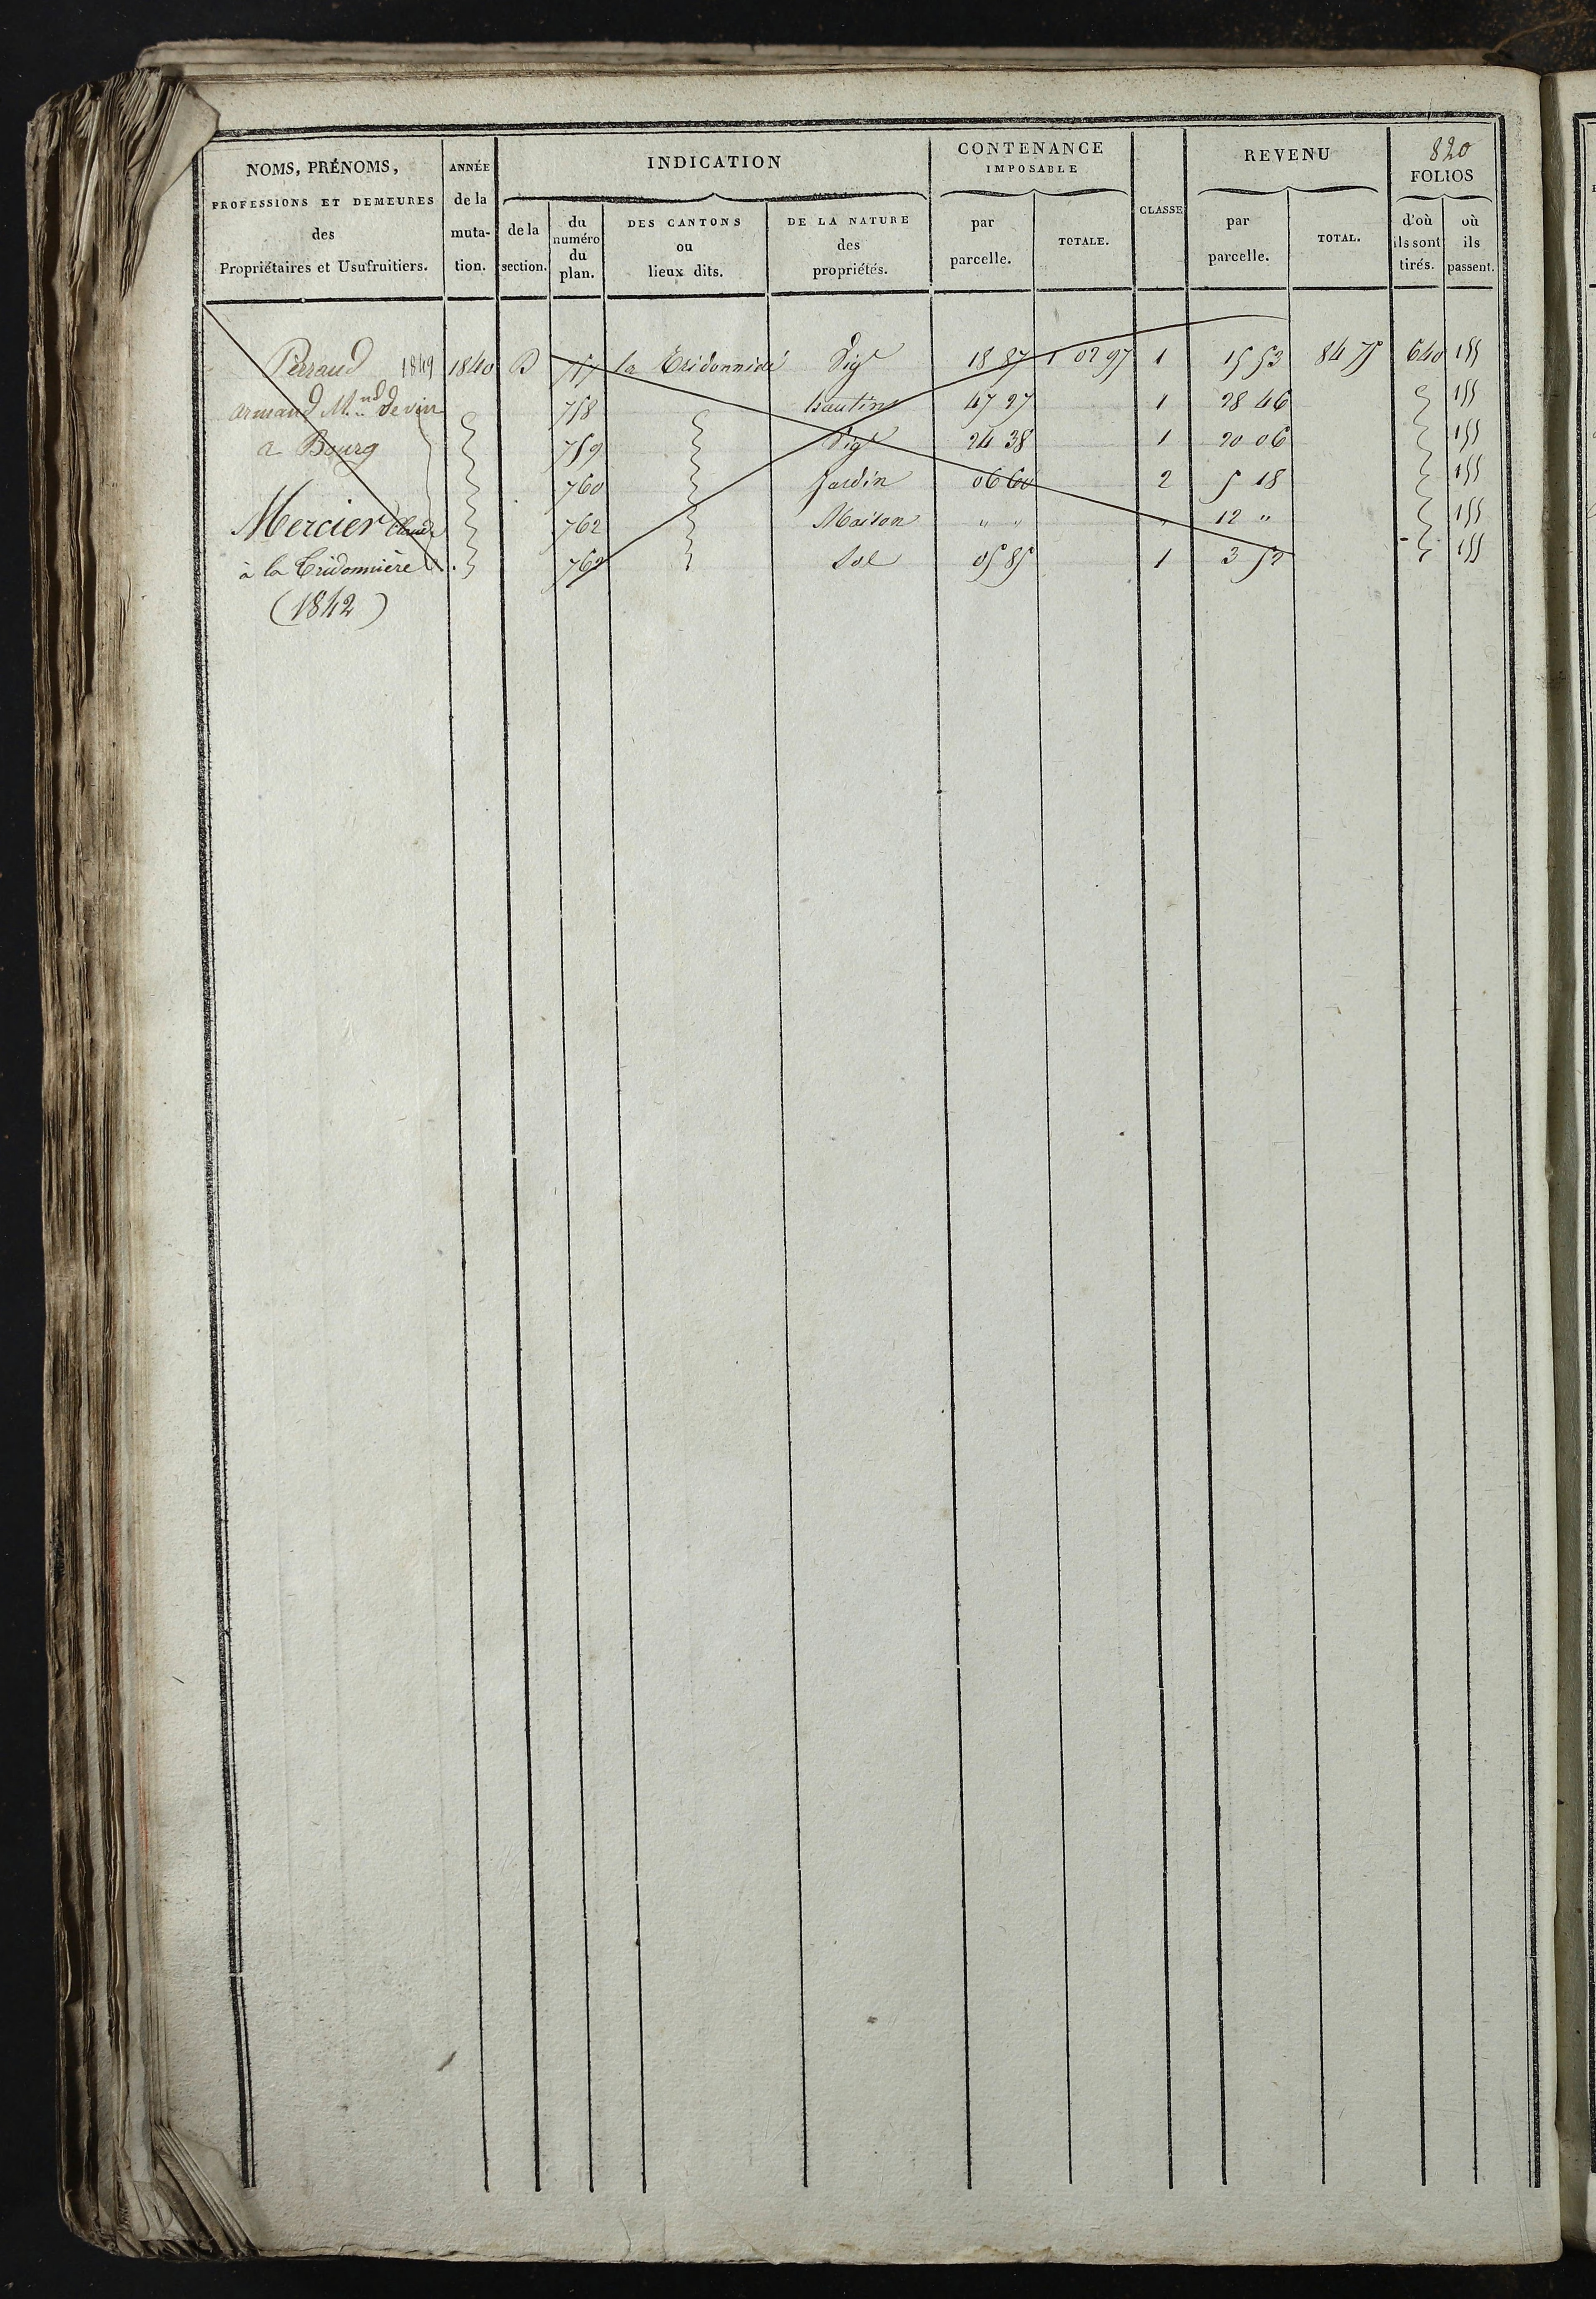 820
NOMS, PRÉNOMS, PROFESSIONS ET DEMEURES des Propriétaires et Usufruitiers.
ANNÉE de la muta- tion.
INDICATION
de la section.
du numéro du plan.
DES CANTONS ou lieux dits.
DE LA NATURE des propriétés.
CONTENANCE IMPOSABLE
par parcelle.
TOTALE.
CLASSE
REVENU
par parcelle.
TOTAL.
FOLIOS
d'où ils sont tirés.
où ils passent.
Perraud 1849 1840 B 757 la Tridonnière Vig 18 87 1 02 97 1 15 53 84 75 640 155
armand M.nd de vin 758 hautins 47 27 1 28 46 155
a Bourg 759 Vig 24 38 1 20 06 155
760 Jardin 06 60 2 5 18 155
Mercier Claude 762 Maison " " " 12 " 155
à la Tridonnière 762 Sol 05 85 1 3 52 155
(1842)